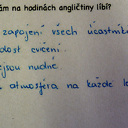 ám na hodinách angličtiny líbí?
zapojení všech účastník
dost cvičení
ejsou nudné.
atmosféra na každé le